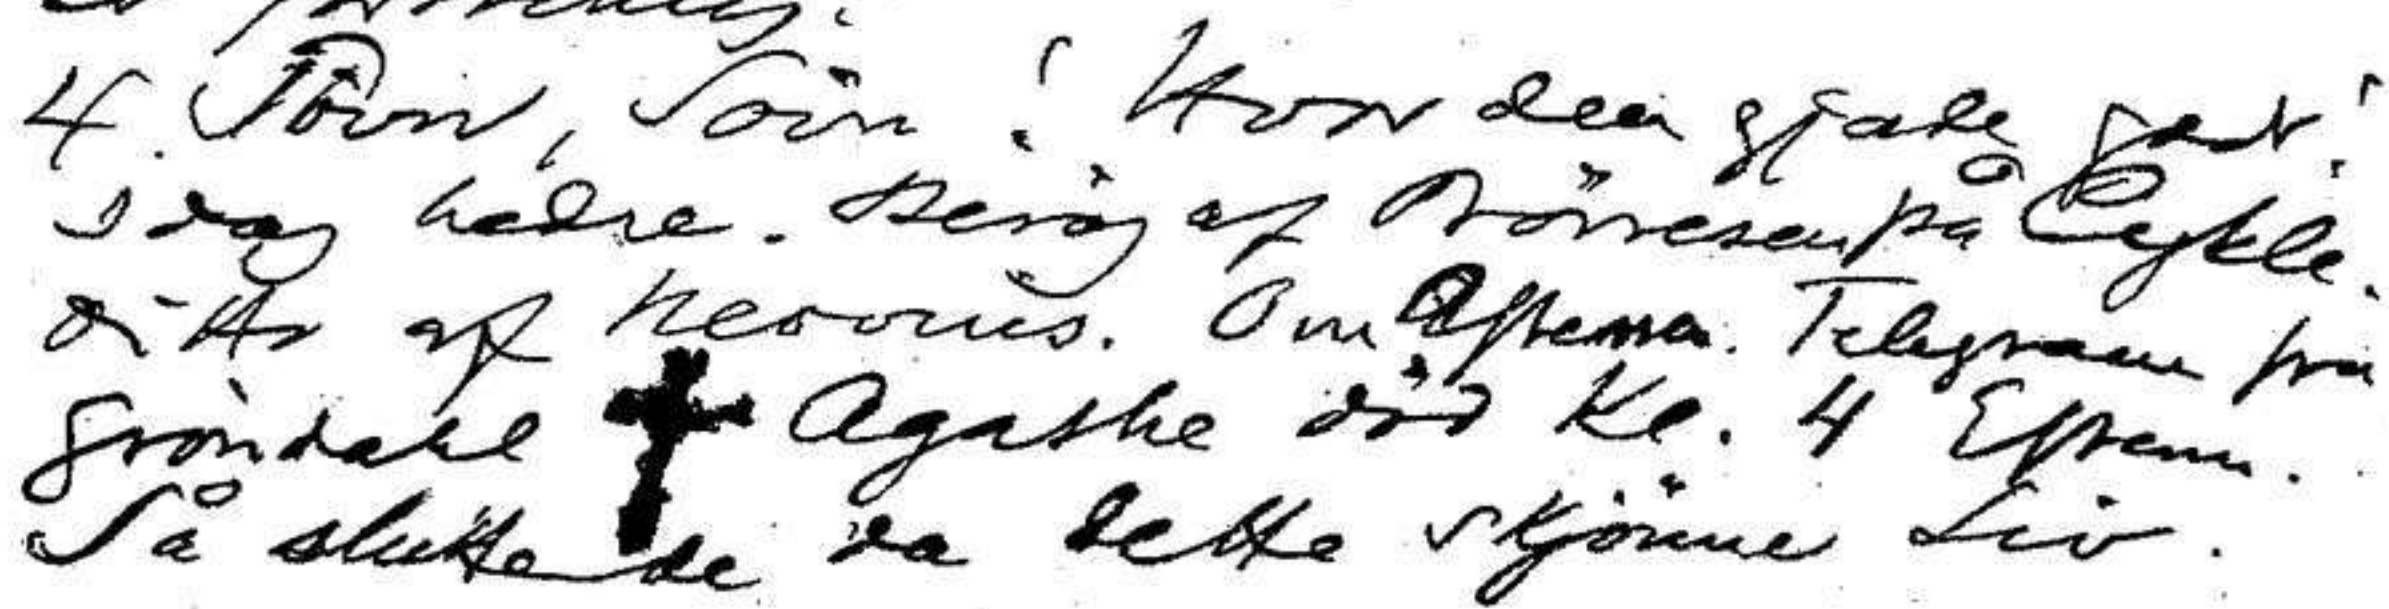 4. Søvn, Søvn! Hvor den gjøde godt!
I dag bedre. Besøg af Börresen på Cykle.
Ditto af Nervøs. Om Aftenen. Telegram fra
Gröndahl Agathe död Kl. 4 Efterm.
Så sluttede da dette skjönne Liv.